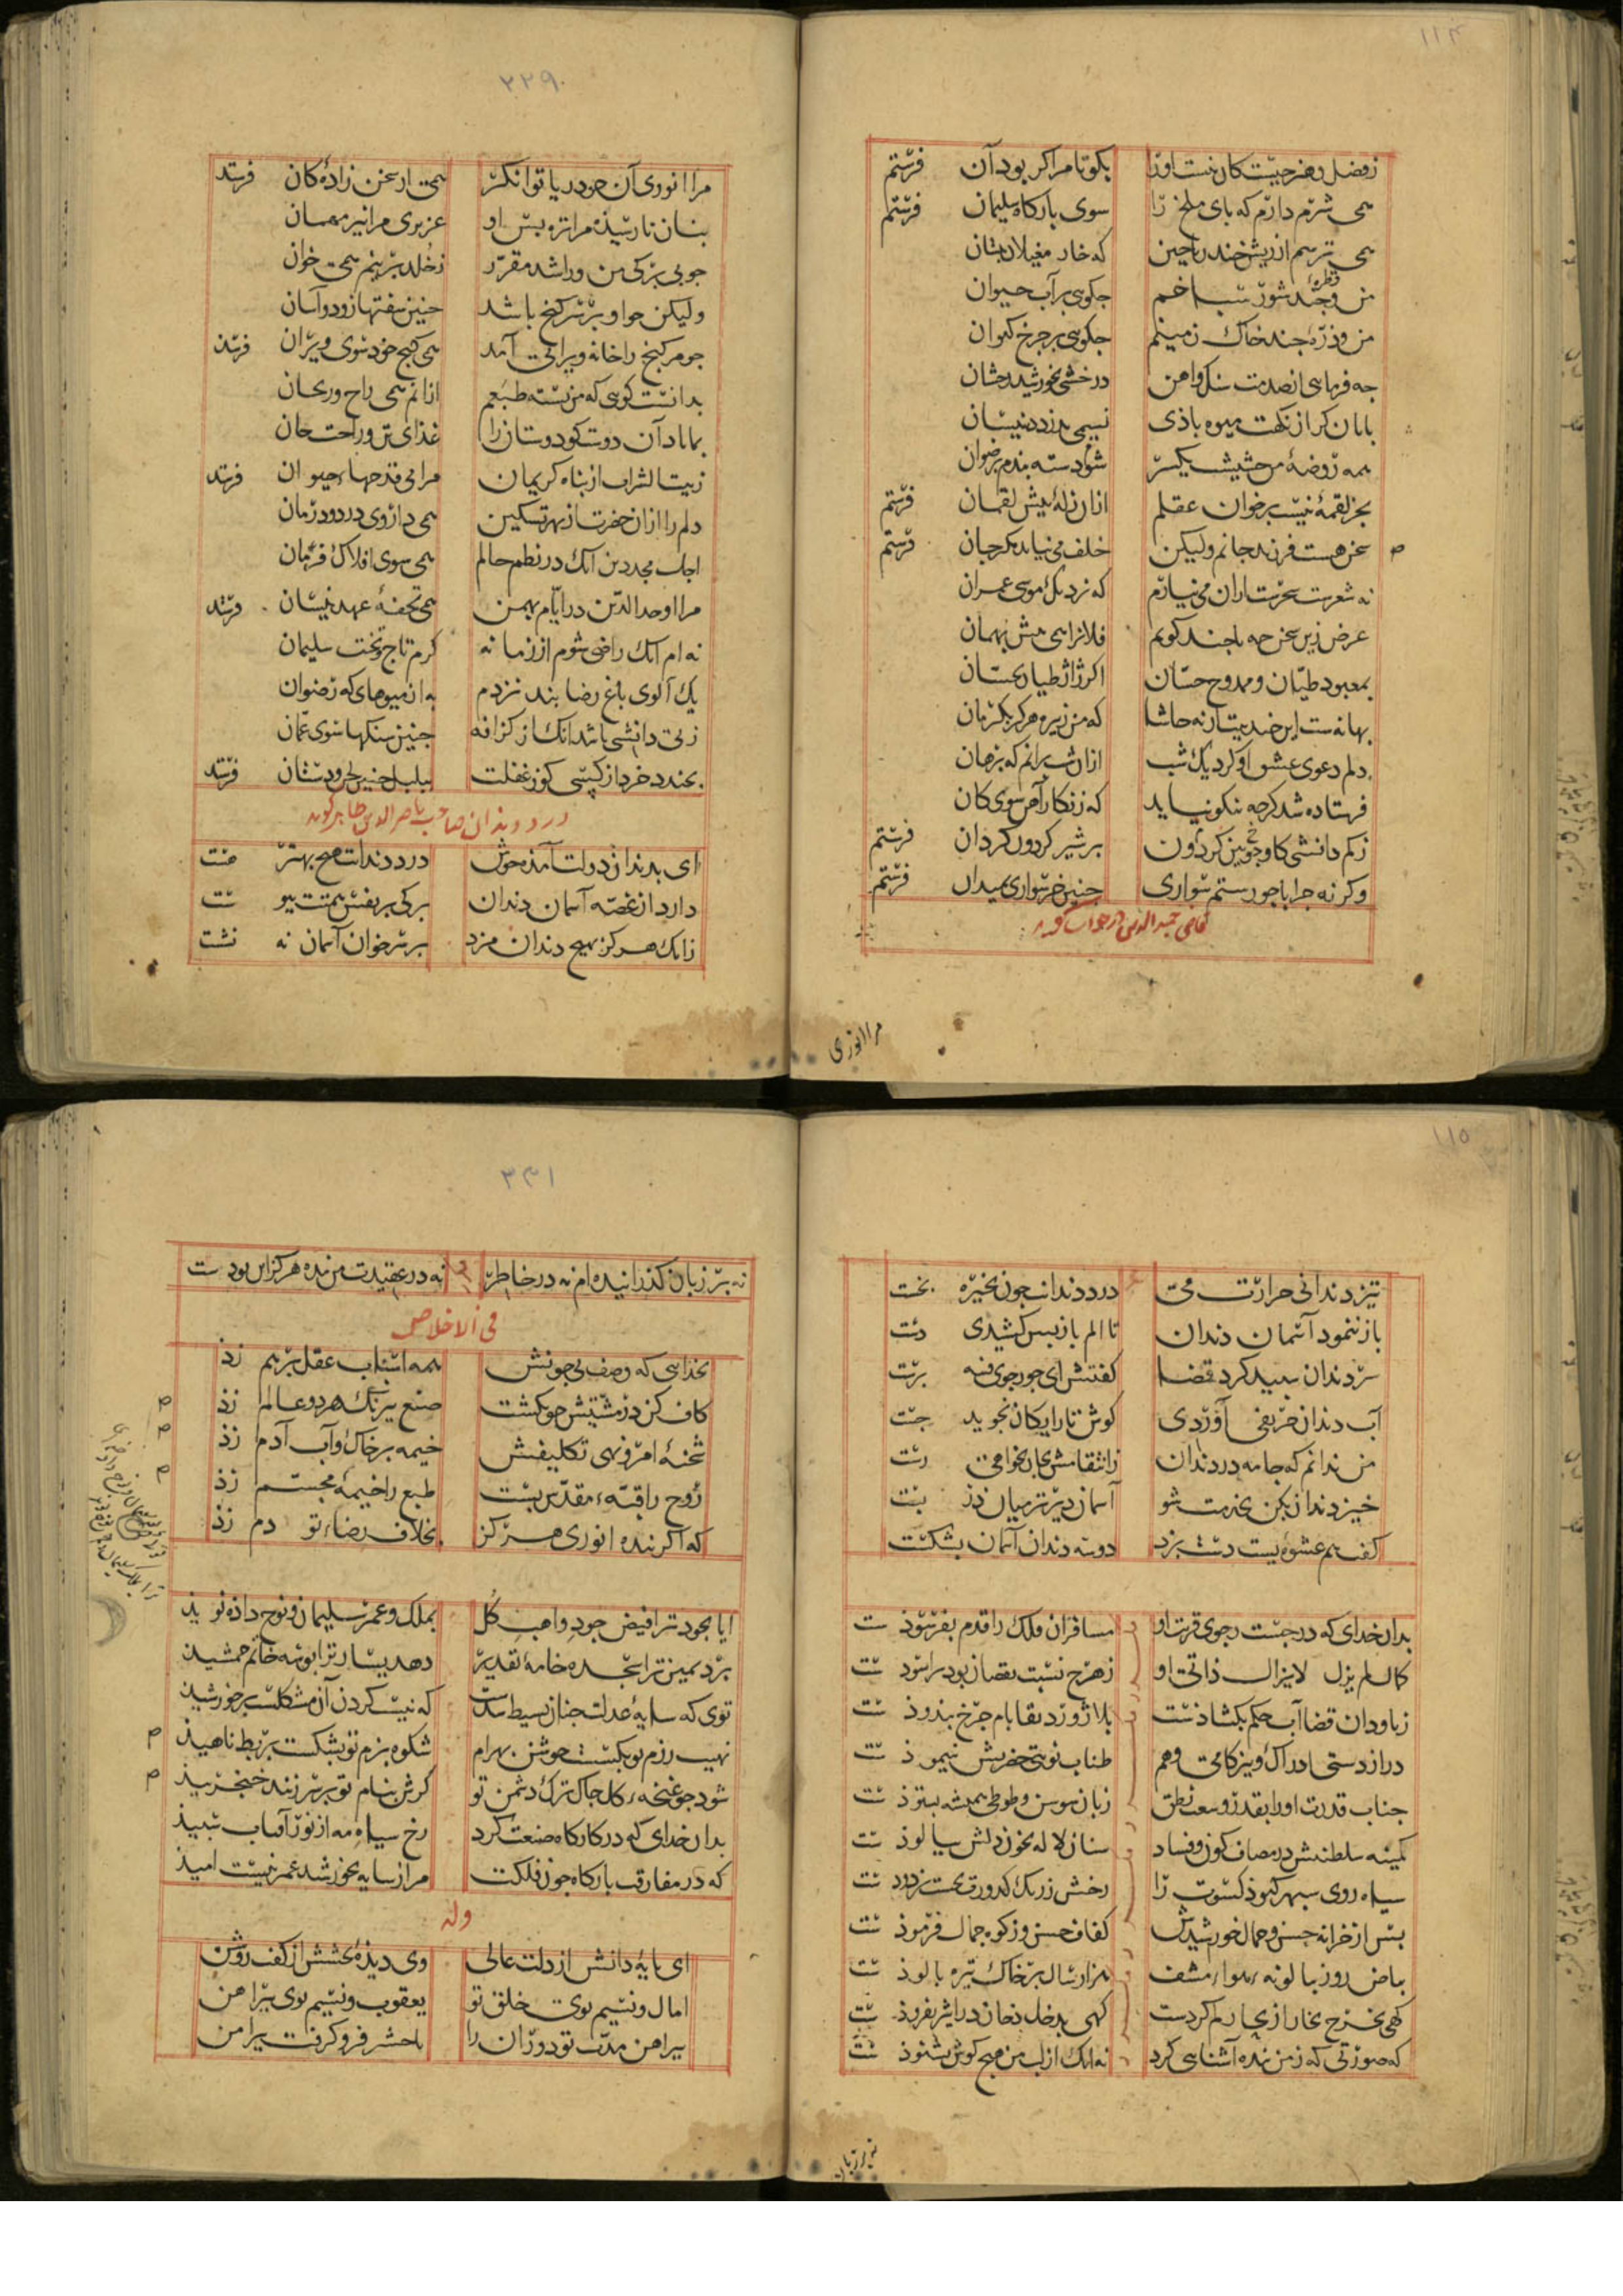 ۱۱۴
ز فضل و هنر چیست کان نیست او را بکو تا مرا کر بود آن فرستم
همی شرم دارم که پای ملخ را سوی بارکاه سلیمان فرستم
همی ترسم از ریشخند ریاحین که خار مغیلان ببستان
من و قطره چند شور سباخم چکویی بر آب حیوان
من و ذره چند خاک زمینم چکویی بر چرخ کیوان
درخشی بخورشید رخشان
نسیمی بدزدد نیسان
همه روضه من حشیشیست یکسر شود دسته بندم برضوان
بجز لقمه نیست بر خوان عقلم ازان زله پیش لقمان فرستم
سخن هست فرزند جانم ولیکن خلف می نیاید مکر جان فرستم
نه شعرست سحرست ازان می نیارم که نزدیک موسی عمران
غرض زین سخن چه با چند کویم فلانرا همی پیش بهمان
بمعبود طیان و ممدوح حسان اکر ژاژ طیان بحسان
بهانه ست این خدمت ارنه حاشا که من زیره هرکز بکرمان
دلم دعوی عشق او کرد یک شب ازان شب برانم که برهان
فرستاده شد کرچه نیکو نیاید که زنکار آهن سوی کان
ز کم دانشی کاو چوبین کردون بر شیر کردون کردان فرستم
وکر نه چرا با چو رستم سواری چنین خر سواری بمیدان فرستم
قاضی حمید الدین در جواب کوید
مرا انوری
۲۲۹
مرا انوری آن چو دریا توانکر همی از سخن زاده کان فرستد
بنان نارسیده مرا تره بس او عزیزی مرا نیز مهمان
چو بی برکی من ورا شد مقرر ز خلد برینم همی خوان
ولیکن چو او بر سر کنج باشد چنین سفتها زود و آسان
چو مر کنج را خانه ویرانی آمد همی کنج خود سوی ویران فرستد
بدانست کویی که من بسته طبعم ازانم همی راح و ریحان
بماناد آن دوست کو دوستان را غذای تن و راحت جان
ز بیت الشراب از بناه کریمان مرا می قدحهای حیوان فرستد
دلم را ازان حضرت از بهر تسکین همی داروی درد و درمان
اجل مجد دین آنک در نظم حالم همی سوی افلاک فرمان
مرا اوحد الدین در ایام بهمن همی تحفه عهد نیسان فرستد
نه ام آنک راضی شوم از زمانه کرم تاج و تخت سلیمان
یک آلوی باغ رضا بند نزدم به از میوهای که رضوان
ز بی دانشی باشد آنک از کزافه چنین سنکها سوی عمان
بخندد خرد از کسی کو ز غفلت ببلبل چنین لحن و دستان فرستد
درد دندان صاحب ناصر الدین طاهر کوید
ای بدندان دولت آمده خوش درد دندانت هیچ بهتر هست
دارد از غصه آسمان دندان برکی بر بفس همتت پیوست
زانک هرکز بهیچ دندان مزد بر سر خوان آسمان ننشست
۱۱۵
تیز دندانی حرارت می درد دندانت چون بخیره بخست
باز ننمود آسمان دندان تا الم باز پس کشیدی دست
سر دندان سپید کرد قضا کفتش ای جور جوی فتنه پرست
آب دندان حریفی آوردی کوش تا رایکان نجوید جست
من ندانم که جامه در دندان ز انتقامش بجان نخواهی رست
خیز دندان بکن بخدمت شو آسمان دیر تر میان در بست
کفت هم عشوه ییست دست بزد دو سه دندان آسمان بشکست
بدان خدای که در جست و جوی قربت او مسافران فلک را قدم بفرسودست
کمال لم یزل لایزال ذاتی او ز هر چه نسبت نقصان بود برآسودست
ز باودان قضا آب حکم بکشادست بلاژورد بقا بام چرخ بندودست
دراز دستی ادراک و تیزکامی وهم طناب نوبتی حضرتش نپیمودست
جناب قدرت او را بقدر وسعت نطق زبان سوسن و طوطی همیشه بستودست
کمینه سلطنتش در مصاف کون و فساد سنان لاله بخون دلش بیالودست
سیاه روی سپهر کبود کسوت را رخش ز رنک کدورت بحسن بزدودست
پس از خزانه حسن و جمال خورشیدش کفاف حسن و زکوة جمال فرمودست
بیاض روز بپالونه هواء مشفی هزار سال بر خاک تیره پالودست
کهی بخرج بخار از بحار کم کردست کهی بدخل دخان در اثیر بفزودست
که صورتی که ز من بنده آشنایی کرد نه آنک از لب من هیچ کوش بشنودست
نه بر زبان
۲۳۱
نه بر زبان کذرانیده ام نه در خاطر نه در عقیدت من بنده هرکز این بودست
فی الاخلاص
بخدایی که وصف بی چونش همه اسباب عقل بر هم زد
کاف کن در مشیتش چو بکشت صنع بیرنک هر دو عالم زد
شحنه امر و نهی تکلیفش خیمه بر خاک و آب آدم زد
روح را قبه مقدس بست طبع را خیمه مجسم زد
که اکر بنده انوری هرکز بخلاف رضاء تو دم زد
ایا بجود ترا فیض جود واهب کل بملک و عمر سلیمان و نوح داده نوید
برد یمین ترا سجده خامه تقدیر دهد یسار ترا بوسه خاتم جمشید
توی که سایه عدلت چنان بسیط شدست که نیست کردن آن مشکلست بر خورشید
نهیب رزم تو بکسست جوشن بهرام شکوه بزم تو بشکست بربط ناهید
شود چو غنچه کل چاک ترک دشمن تو کرش بنام تو بر سر زنند خنجر بید
بدان خدای که در کارکاه صنعت کرد رخ سیاه مه از نور آفتاب سپید
که در مفارقت بارکاه چون فلکت مرا ز سایه بخورشید عمر نیست امید
وله
ای پایه دانش از دلت عالی وی دیده بخشش از کفت روشن
امال و نسیم بوی خلق تو یعقوب و نسیم بوی پیراهن
پیراهن مدت تو دوران را با حشر فرو کرفت پیرامن